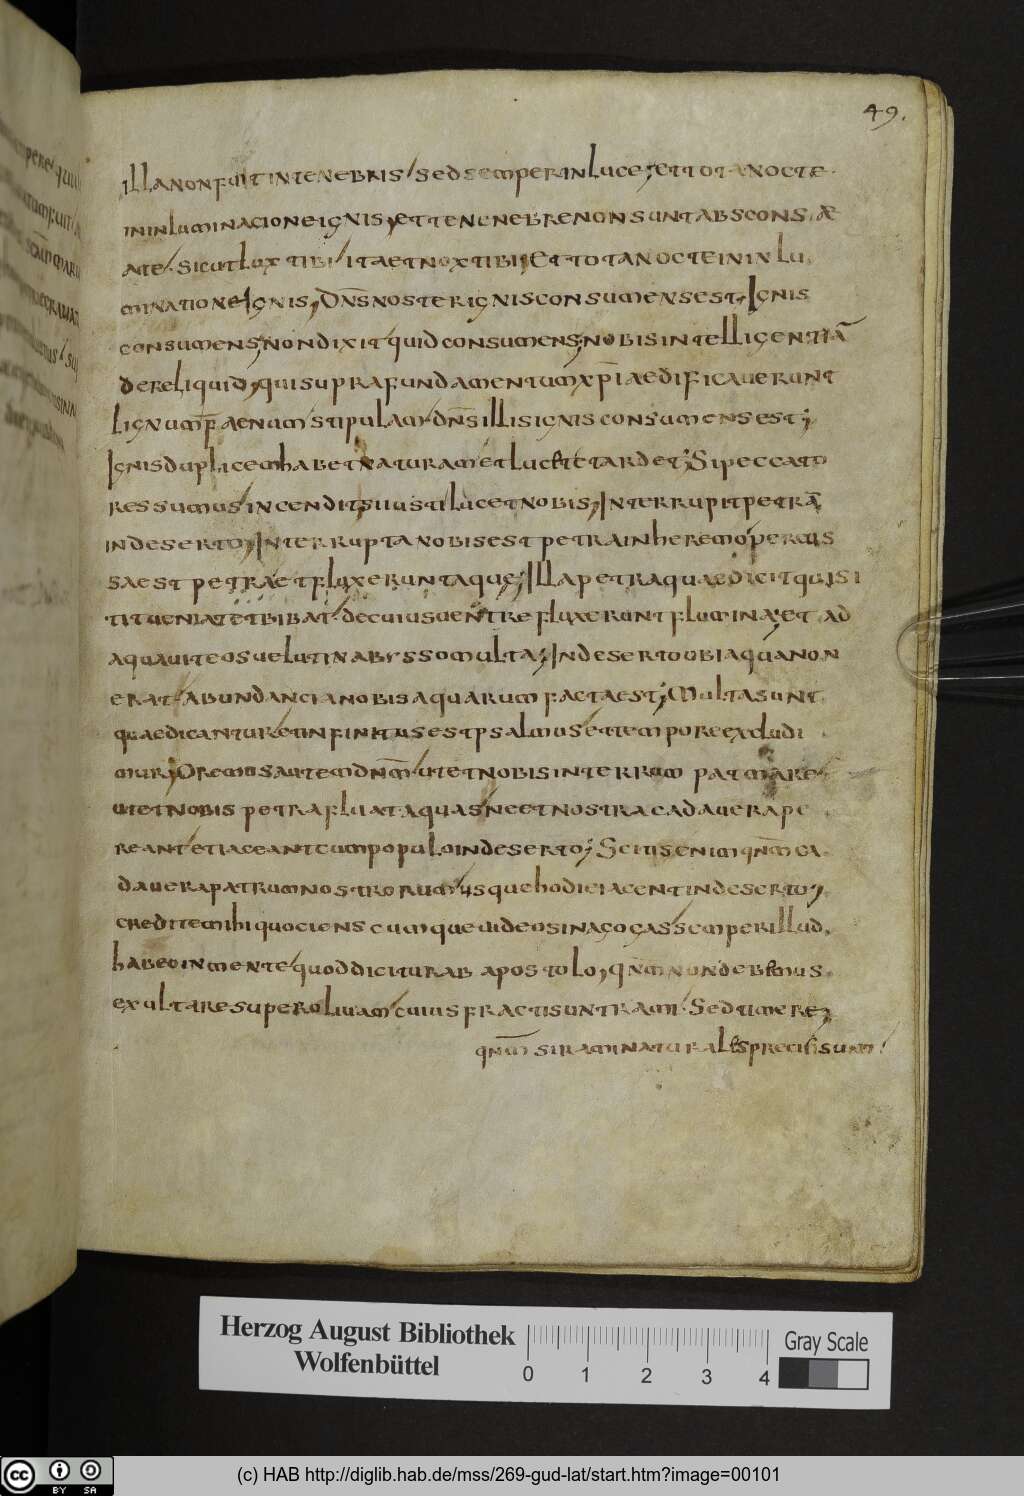 49.
illa non fuit in tenebris / sed semper in luce; et tota nocte
in inluminacione ignis, et tenenebre non sunt absconsæ
a te / sicut lux tibi / ita et nox tibi; Et tota nocte in inlu
minatione ignis, Dn̄s noster ignis consumens est, Ignis
consumens, non dixit quid consumens, nobis intelligentiā
dereliquid, qui supra fundamentum xp̄i aedificauerunt
lignum faenum stipulam / dn̄s illis ignis consumens est;
Ignis duplicem habet naturam et lucet et ardet; Si peccato
res sumus incendit, si iusti lucet nobis, Interrupit petrā
in deserto; Interrupta nobis est petra in heremo percus
sa est petra et fluxerunt aquę; Illa petra quae dicit qui si
tit ueniat et bibat / de cuius uentre fluxerunt flumina; et ad
aqua uite os uelut in abysso multa; In deserto ubi aqua non
erat / abundancia nobis aquarum facta est; Multa sunt
quae dicantur et infinitus est psalmus et tempore excludi
mur; Oremus autem dn̄m / ut et nobis interrum pat mare
ut et nobis petra fluat aquas ne et nostra cadauera pe
reant et iaceant cum populo in deserto; Scitis enim qnm̄ ca
dauera patrum nostrorum usque hodie iacent in deserto,
credite mihi quociens cumque uideo sinagogas semper illud
habeo in mente quod dicitur ab apostolo, qnm̄ non debemus
exultare super oliuam / cuius fracti sunt rami / Sed timere,
qnm̄ si rami naturales precisi sunt
Herzog August Bibliothek
Wolfenbüttel
0 1 2 3 4
Gray Scale
(c) HAB http://diglib.hab.de/mss/269-gud-lat/start.htm?image=00101
cc BY SA